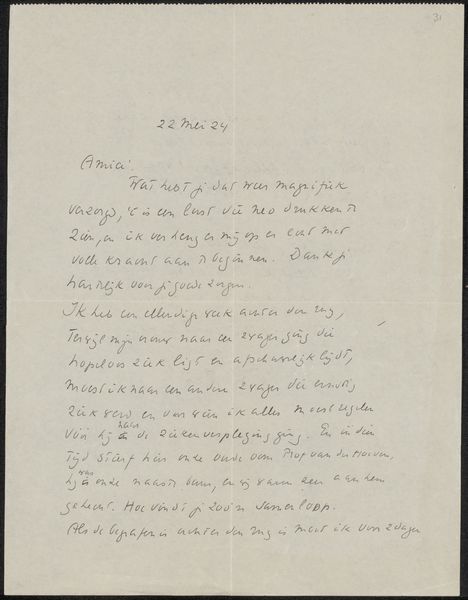 31
22 Mei 24
Amice!
Wat hebt ji dat weer magnifiek
verzorgd, 't is een lust die neo drukken te
zien, en ik verheug er mij op er eens met
volle kracht aan te beginnen. Dank ji
hartelijk voor ji goede zorgen.
Ik heb een ellendige week achter den rug,
Terwijl mijn vrouw naar een zwager ging die
hopeloos ziek ligt en afschuwelijk lijdt,
moest ik naar een andere zwager die ernstig
ziek werd en voor wien ik alles moest regelen
vóór hij naar de ziekenverpleging ging. En in dien
tijd stierf hier onze oude oom Prof van der Hoeven,
hij was onze naaste buur, en wij waren zeer aan hem
gehecht. Hoe vindt ji zoo'n samenloop.
Als de begrafenis achter den rug is moet ik voor zwager